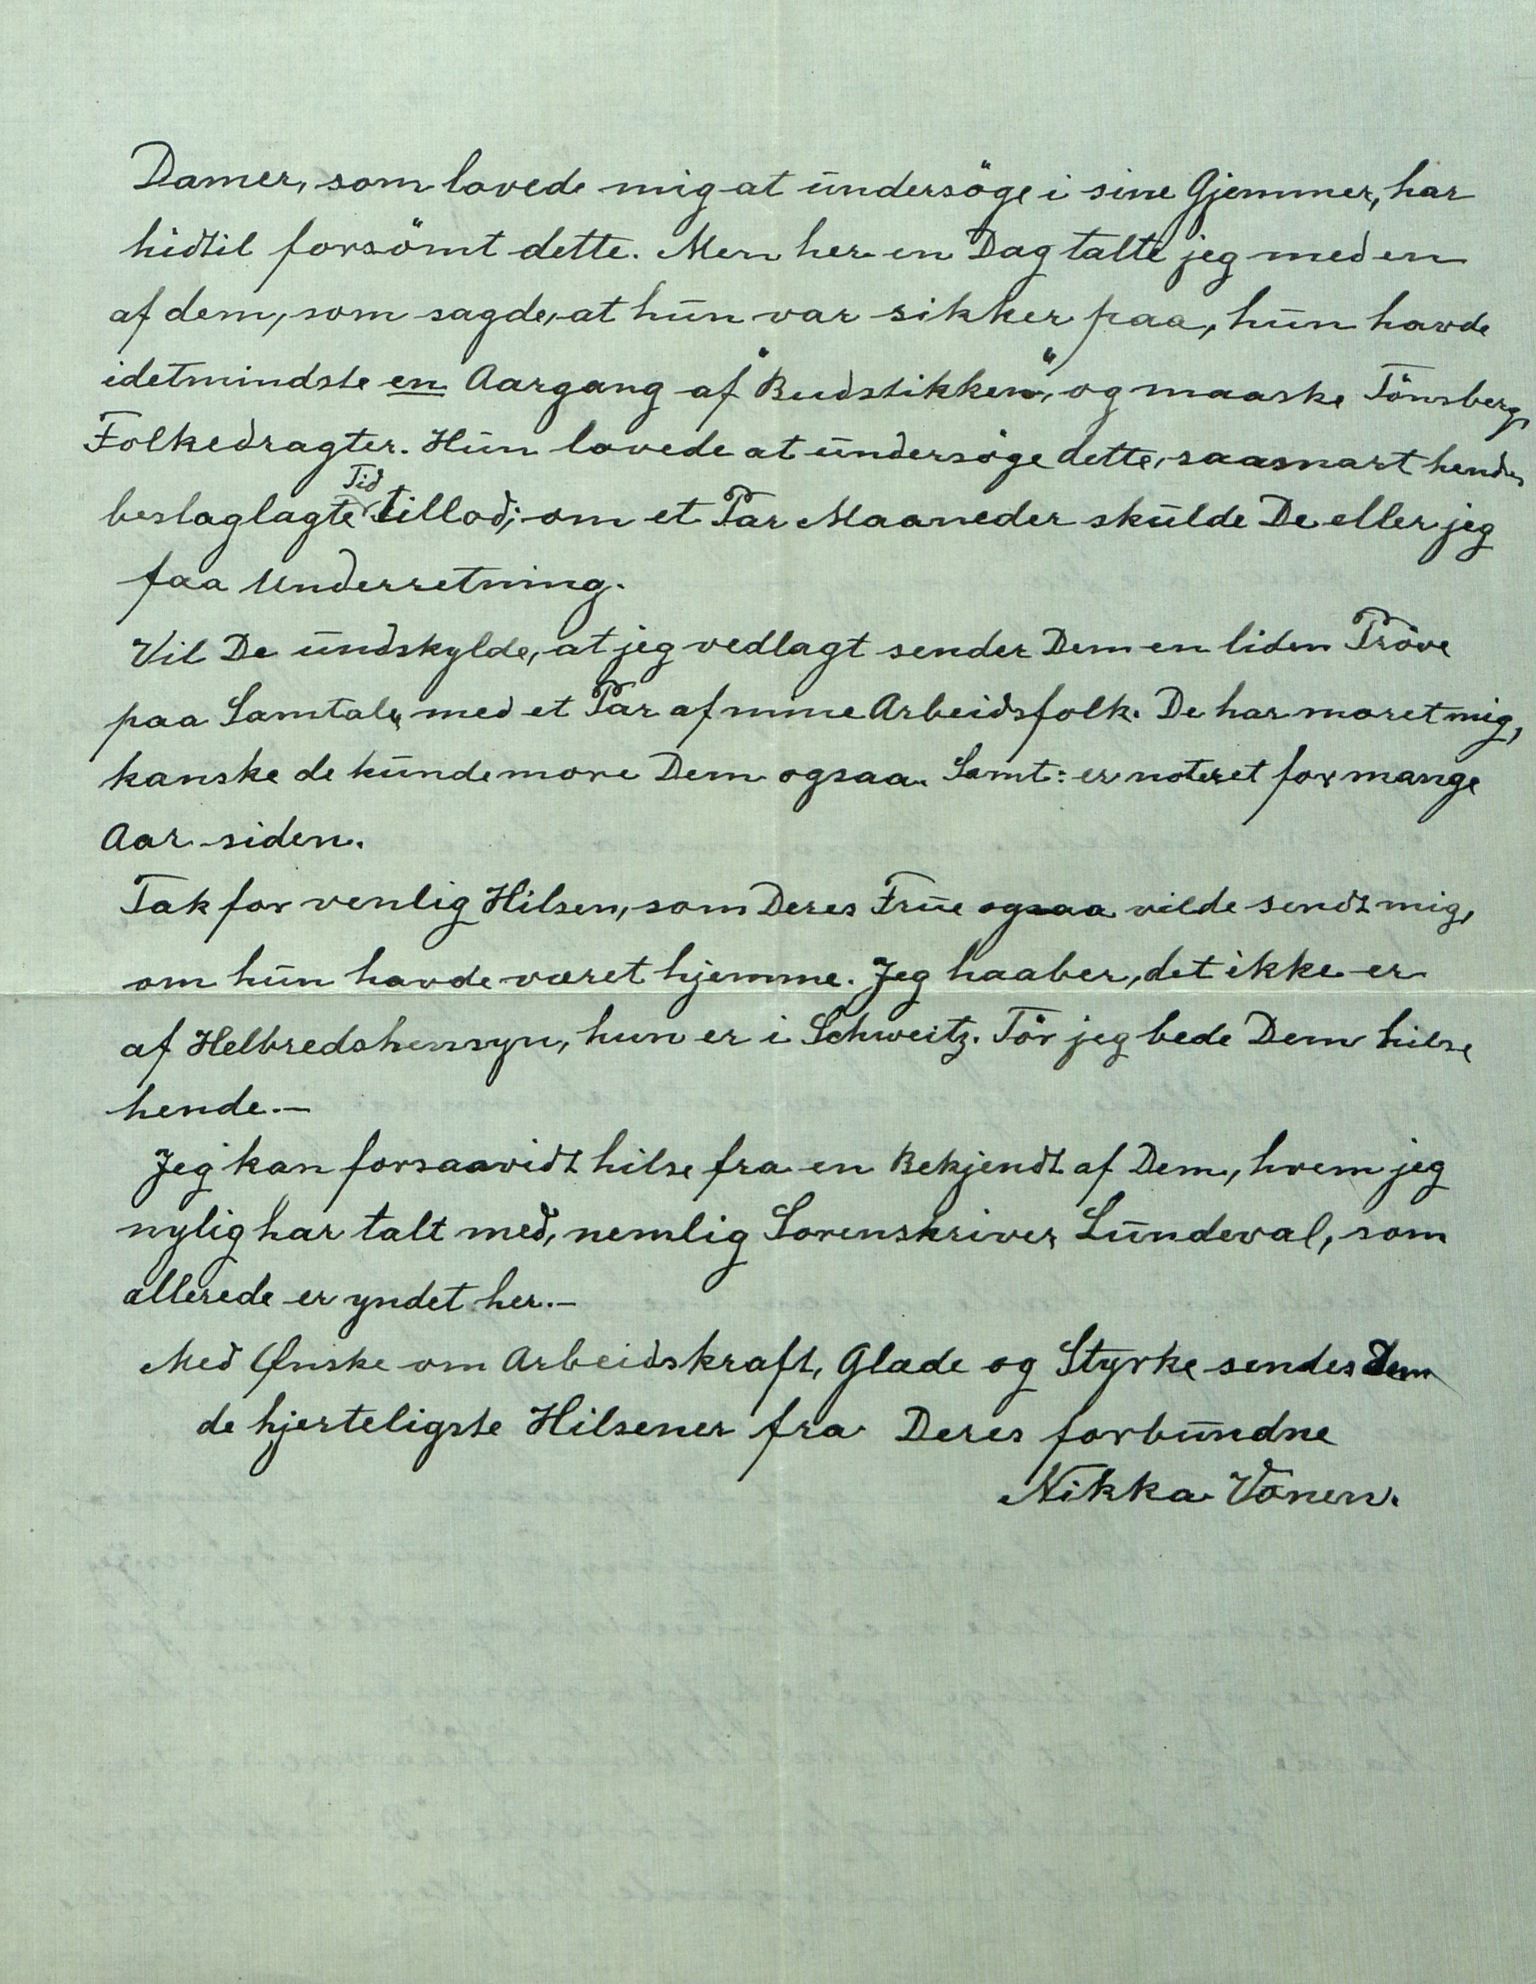 Damer, som lovede mig at undersöge i sine Gjemmer, har
hidtil forsömt dette. Men her en Dag talte jeg med en
af dem, som sagde, at hun var sikker paa, hun havde
idetmindste en Aargang af "Budstikken", og maaske Tönsbergs
Folkedragter. Hun lovede at undersöge dette, saasnart hendes
beslaglagte Tid tillod; om et Par Maaneder skulde De eller jeg
faa Underretning.
Vil De undskylde, at jeg vedlagt sender Dem en liden Pröve
paa Samtale, med et Par af mine Arbeidsfolk. De har moret mig,
kanske de kunde more Dem ogsaa. Samt: er noteret for mange
Aar siden.
Tak for venlig Hilsen, som Deres Frue ogsaa vilde sendt mig,
om hun havde været hjemme. Jeg haaber, det ikke er
af Helbredshensyn, hun er i Schweitz. Tör jeg bede Dem hilse
hende.—
Jeg kan forsaavidt hilse fra en Bekjendt af Dem, hvem jeg
nylig har talt med, nemlig Sorenskriver Lundeval, som
allerede er yndet her.—
Med Ønske om Arbeidskraft, Glæde og Styrke sendes Dem
de hjerteligste Hilsener fra Deres forbundne
Nikka Vonen.